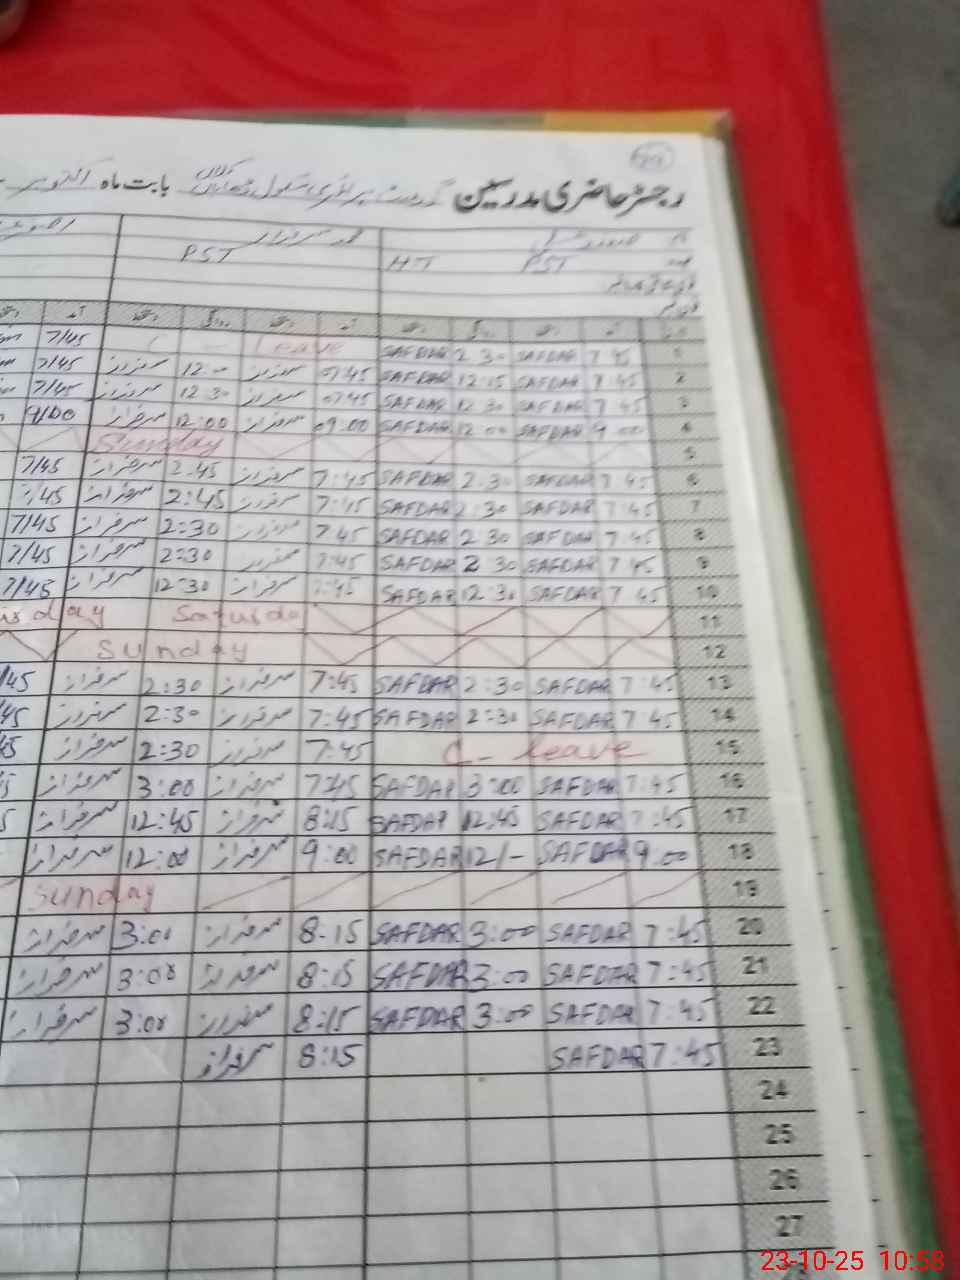 رجسٹر حاضری مدرسین گورنمنٹ پرائمری سکول بابت ماہ اکتوبر
نام صفدر محمد سرفراز
عہدہ PST HT PST
1 7 45 SAFDAR 2 30 SAFDAR Leave 7/45
2 7 45 SAFDAR 12:15 SAFDAR 07:45 سرفراز 12:00 سرفراز 7/45
3 7 45 SAFDAR 12 30 SAFDAR 07:45 سرفراز 12 30 سرفراز 7/45
4 9 00 SAFDAR 12 00 SAFDAR 09:00 سرفراز 12:00 سرفراز 9/00
5 Sunday
6 7 45 SAFDAR 2:30 SAFDAR 7:45 سرفراز 2:45 سرفراز 7/45
7 7:45 SAFDAR 2 30 SAFDAR 7:45 سرفراز 2:45 سرفراز 7/45
8 7:45 SAFDAR 2 30 SAFDAR 7:45 سرفراز 2:30 سرفراز 7/45
9 7:45 SAFDAR 2 30 SAFDAR 7:45 سرفراز 2:30 سرفراز 7/45
10 7 45 SAFDAR 12:30 SAFDAR 7:45 سرفراز 12:30 سرفراز 7/45
11 Saturda
12 Sunday
13 7:45 SAFDAR 2:30 SAFDAR 7:45 سرفراز 2:30 سرفراز /45
14 7 45 SAFDAR 2:30 SAFDAR 7:45 سرفراز 2:30 سرفراز
15 C- leave 7:45 سرفراز 2:30 سرفراز
16 7:45 SAFDAR 3:00 SAFDAR 7:45 سرفراز 3:00 سرفراز
17 7:45 SAFDAR 12:45 SAFDAR 8:15 سرفراز 12:45 سرفراز
18 9:00 SAFDAR 12/- SAFDAR 9:00 سرفراز 12:00 سرفراز
19 Sunday
20 7:45 SAFDAR 3:00 SAFDAR 8-15 سرفراز 3:00 سرفراز
21 7:45 SAFDAR 3:00 SAFDAR 8:15 سرفراز 3:00 سرفراز
22 7:45 SAFDAR 3:00 SAFDAR 8:15 سرفراز 3:00 سرفراز
23 7:45 SAFDAR 8:15 سرفراز
24
25
26
27
23-10-25 10:58